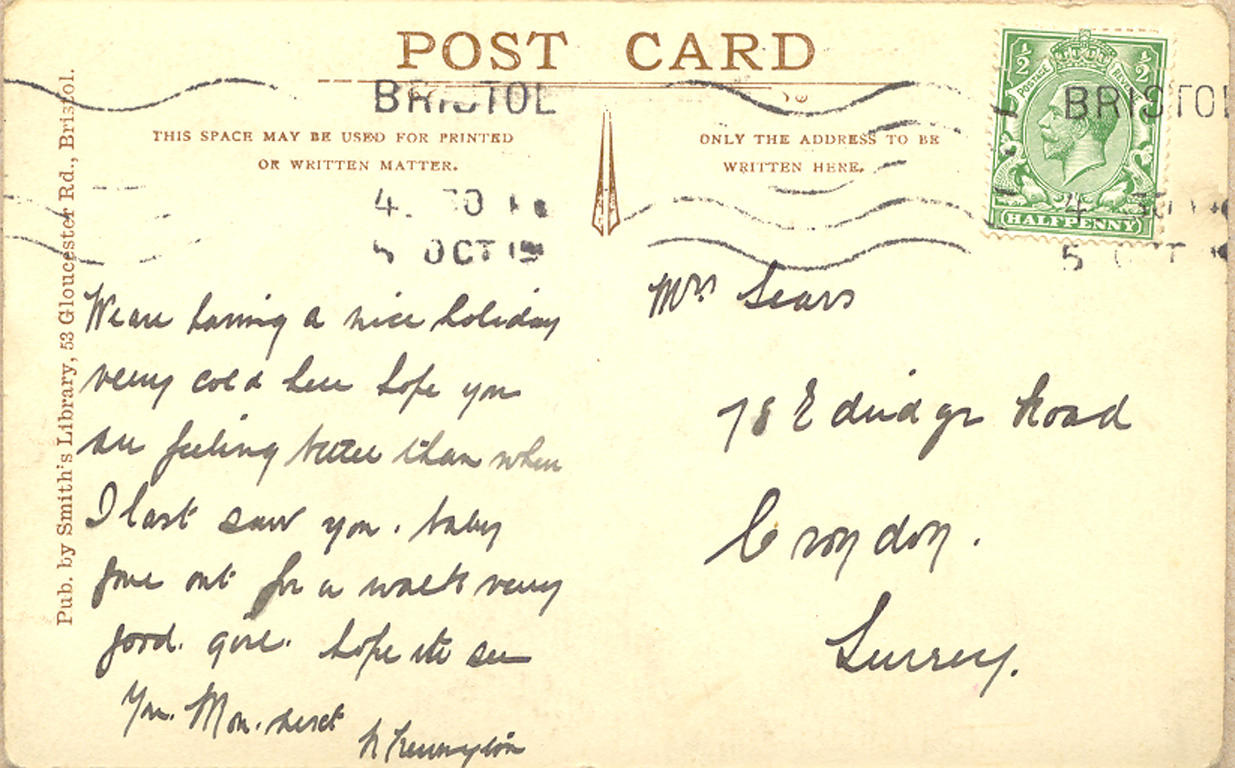 POST CARD
BRISTOL
THIS SPACE MAY BE USED FOR PRINTED
OR WRITTEN MATTER.
ONLY THE ADDRESS TO BE
WRITTEN HERE.
5 OCT
½ ½
POSTAGE REVENUE
HALFPENNY
BRISTOL
5 OCT
Pub. by Smith's Library, 53 Gloucester Rd., Bristol.
We are having a nice holiday
very cold here hope you
are feeling better than when
I last saw you. baby
gone out for a walk very
good. girl. hope to see
you. Mon. next
Mrs Sears
78 Edridge Road
Croydon.
Surrey.